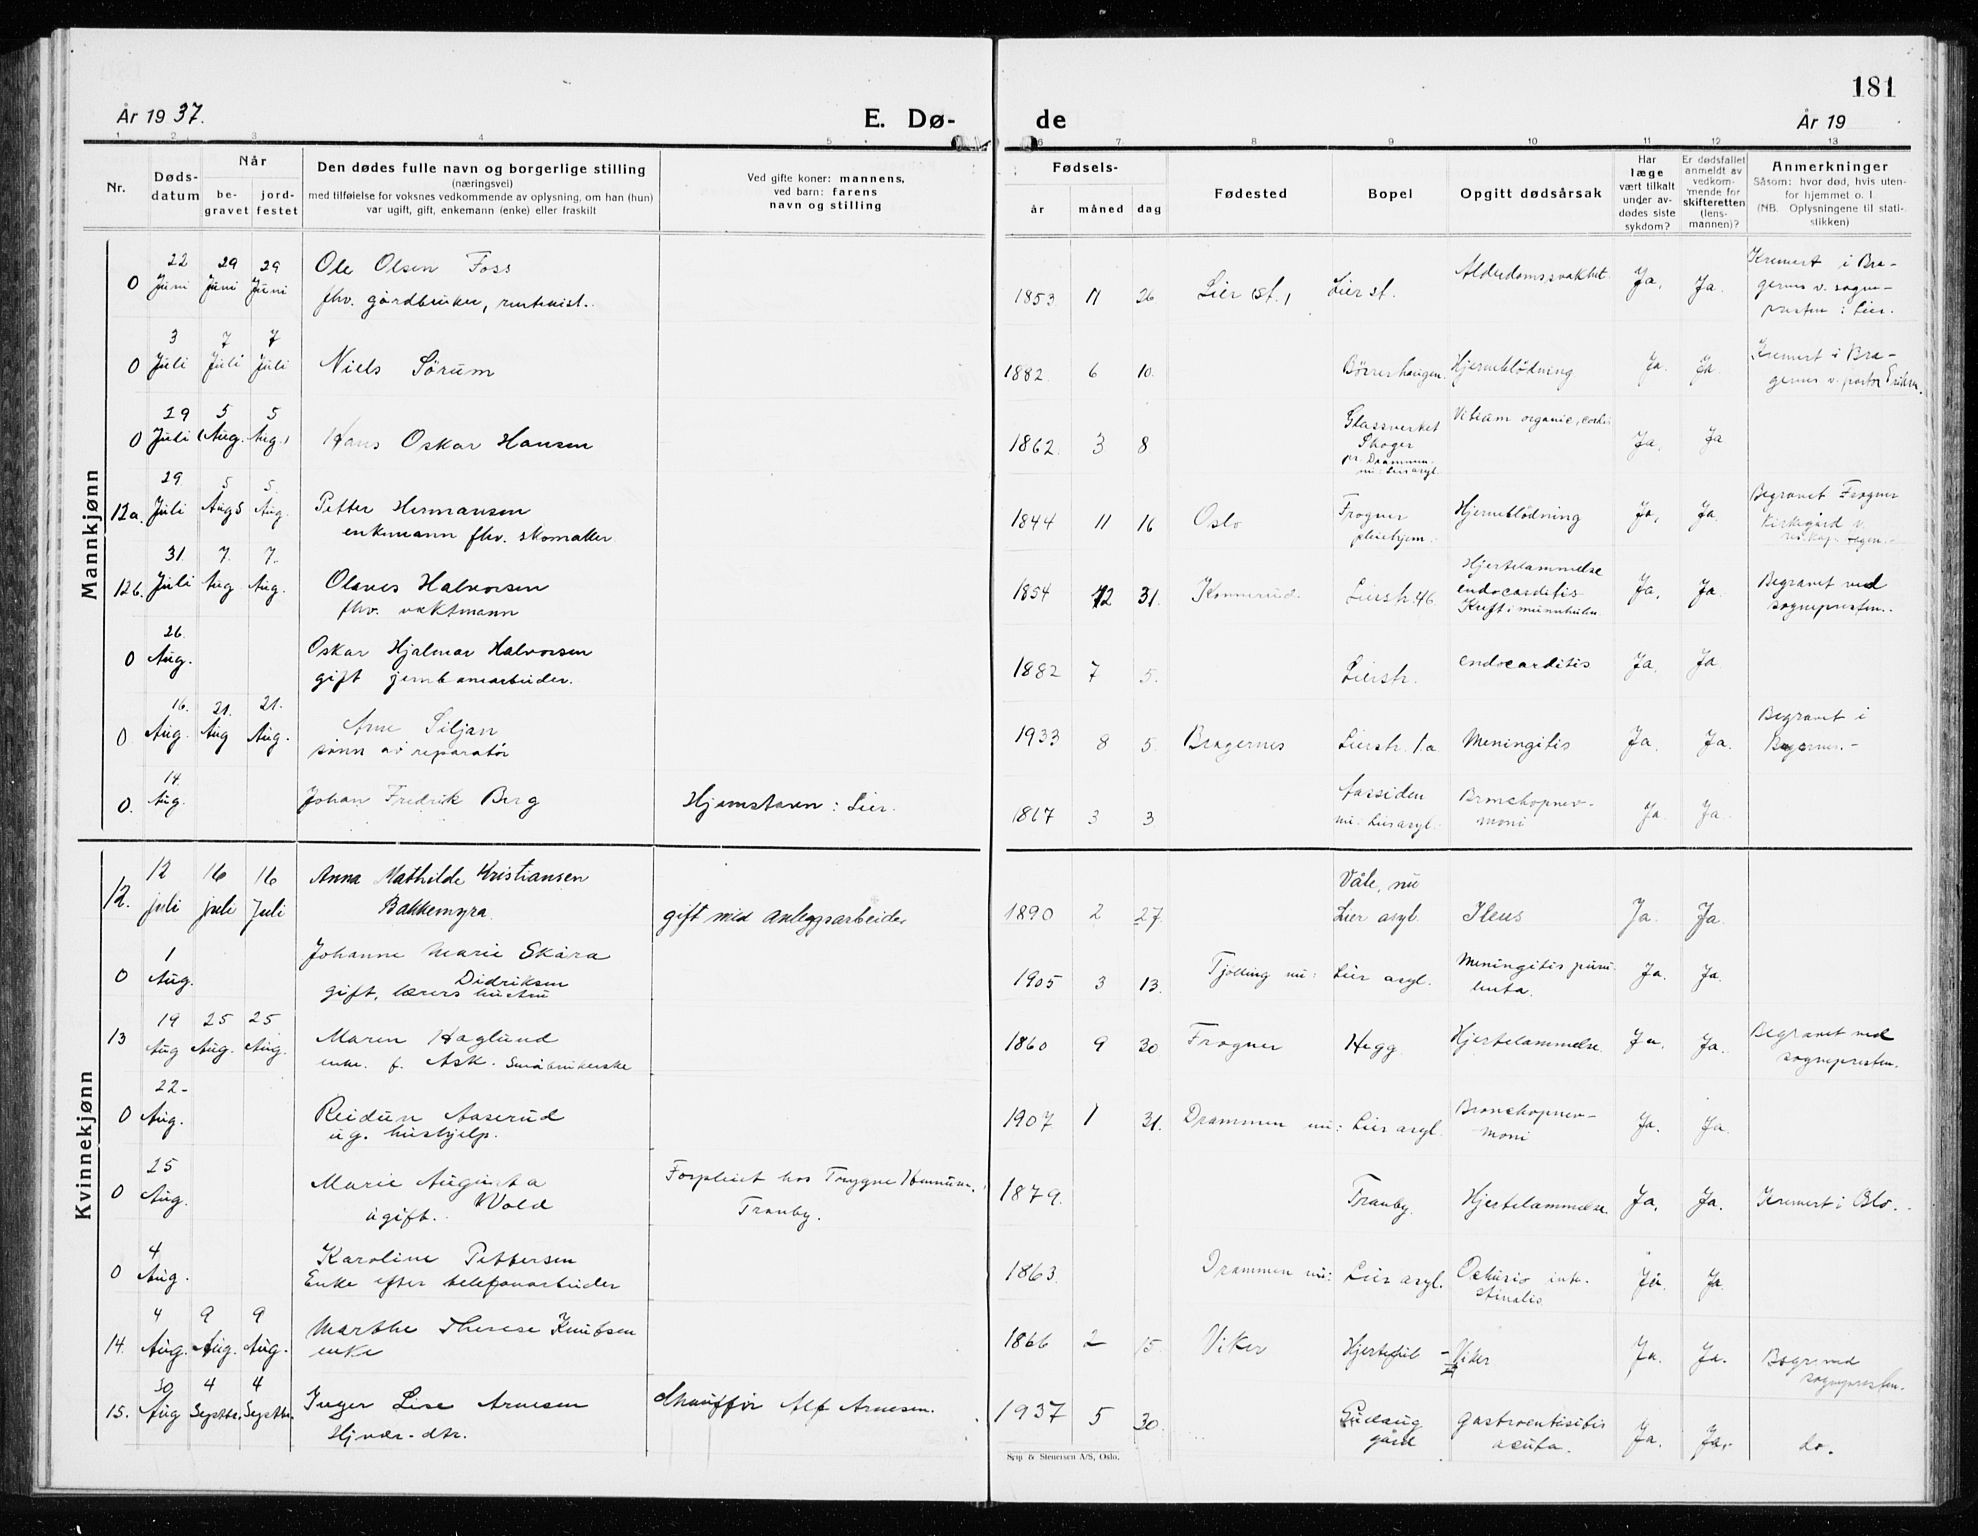 181
År 1937.
E. Dø-
de
År 19
1 2 3 4 5 6 7 8 9 10 11 12 13
Nr.
Døds-
datum
Når
be-
gravet
jord-
festet
Den dødes fulle navn og borgerlige stilling
(næringsvei)
med tilføielse for voksnes vedkommende av oplysning, om han (hun)
var ugift, gift, enkemann (enke) eller fraskilt
Ved gifte koner: mannens,
ved barn: farens
navn og stilling
Fødsels-
år måned dag
Fødested
Bopel
Opgitt dødsårsak
Har
læge
vært tilkalt
under av-
dødes siste
sykdom?
Er dødsfallet
anmeldt av
vedkom-
mende for
skifteretten
(lens-
mannen)?
Anmerkninger
Såsom: hvor død, hvis uten-
for hjemmet o. l.
(NB. Oplysningene til stati-
stikken)
Mannkjønn
22 29 29
0 Juni Juni Juni
Ole Olsen Foss
fhv. gårdbruker, rentenist.
1853 11 26 Lier st., Lier st. Alderdomssvakhet Ja, Ja.
Kremert i Bra-
gernes v. sogne-
presten i Lier.
3 7 7
0 Juli Juli Juli
Niels Sørum
1882. 6 10. Børreshaugen. Hjerneblødning Ja. Ja.
Kremert i Bra-
gernes v. pastor Eriksen.
29 5 5
0 Juli Aug. Aug.
Hans Oskar Hansen
1862. 3 8.
Glassverket
Skoger
pr. Drammen.
nu: Lier asyl.
Vitium organic. cordis
Ja, Ja
29. 5 5.
12a. Juli Aug 5 Aug.
Petter Hermansen
enkmann fhv. skomaker
1844 11 16 Oslo
Frogner
pleiehjem.
Hjerneblødning Ja, Ja.
Begravet Frogner
Kirkegård v.
31. 7. 7.
12b. Juli Aug Aug.
Olaves Halvorsen
fhv. vaktmann
1854 12 31. Konnerud. Lierstr. 46.
Hjertelammelse
endocarditis
Kreft i munnhulen.
Ja, Ja.
Begravet ved
sognepresten..
26.
0 Aug.
Oskar Hjalmar Halvorsen
gift jernbanearbeider.
1882 7 5. Lierstr. endocarditis Ja, Ja
16. 21. 21.
0. Aug. Aug Aug.
Arne Siljan
sønn av reparatör
1933 8 5. Bragernes Lierstr. 1a Meningitis Ja. Ja.
Begravet i
Bragernes.-
14.
0. Aug.
Johan Fredrik Berg
Hjemstavn: Lier.
1867 3 3
Aassiden
nu: Lier asyl.
Bronchopnev-
moni
Ja. Ja.
Kvinnekjønn
12 16 16
12. juli juli Juli
Anna Mathilde Kristiansen
Bakkemyra.
gift med anleggsarbeider
1890 2 27.
Våle, nu
Lier asyl.
Ileus Ja. Ja.
1
0 Aug.
Johanne Marie Skåra
Didriksen
gift, lærers hustru
1905 3 13. Tjölling nu: Lier asyl.
Meningitis puru-
lenta.
Ja. Ja.
19 25 25
13 Aug Aug. Aug.
Maren Haglund
enke. f. Ask. Småbrukerske
1860 9 30 Frogner Hegg. Hjertelammelse. Ja. Ja.
Begravet ved
sognepresten.
22-
0 Aug.
Reidun Aaserud
ug. hushjelp.
1907 1 31. Drammen nu: Lier asyl.
Bronchopnev-
moni
Ja. Ja.
25
0 Aug.
Marie Augusta
Wold
ugift.
Forpleiet hos Trygve Hennum.
Tranby.
1879. Tranby. Hjertelammelse. Ja, Ja. Kremert i Oslo.
4
0 Aug.
Karoline Pettersen
Enke efter telefonarbeider
1863. Drammen nu: Lier asyl.
inte-
stinalis.
Ja. Ja.
4 9 9
14. Aug. Aug. Aug.
Marthe Therese Knutsen
enke
1866 2 15. Viker Hjertefeil - Viker Ja. Ja.
Begr. ved
sognepresten.
30 4 4
15. Aug Septbr. Septbr.
Inger Lise Arnesen
Chauffør Alf Arnesen.
1937 5 30.
gård
gastroenteritis
acuta.
Ja. Ja. do.
Sejp & Stenersen A/S, Oslo.